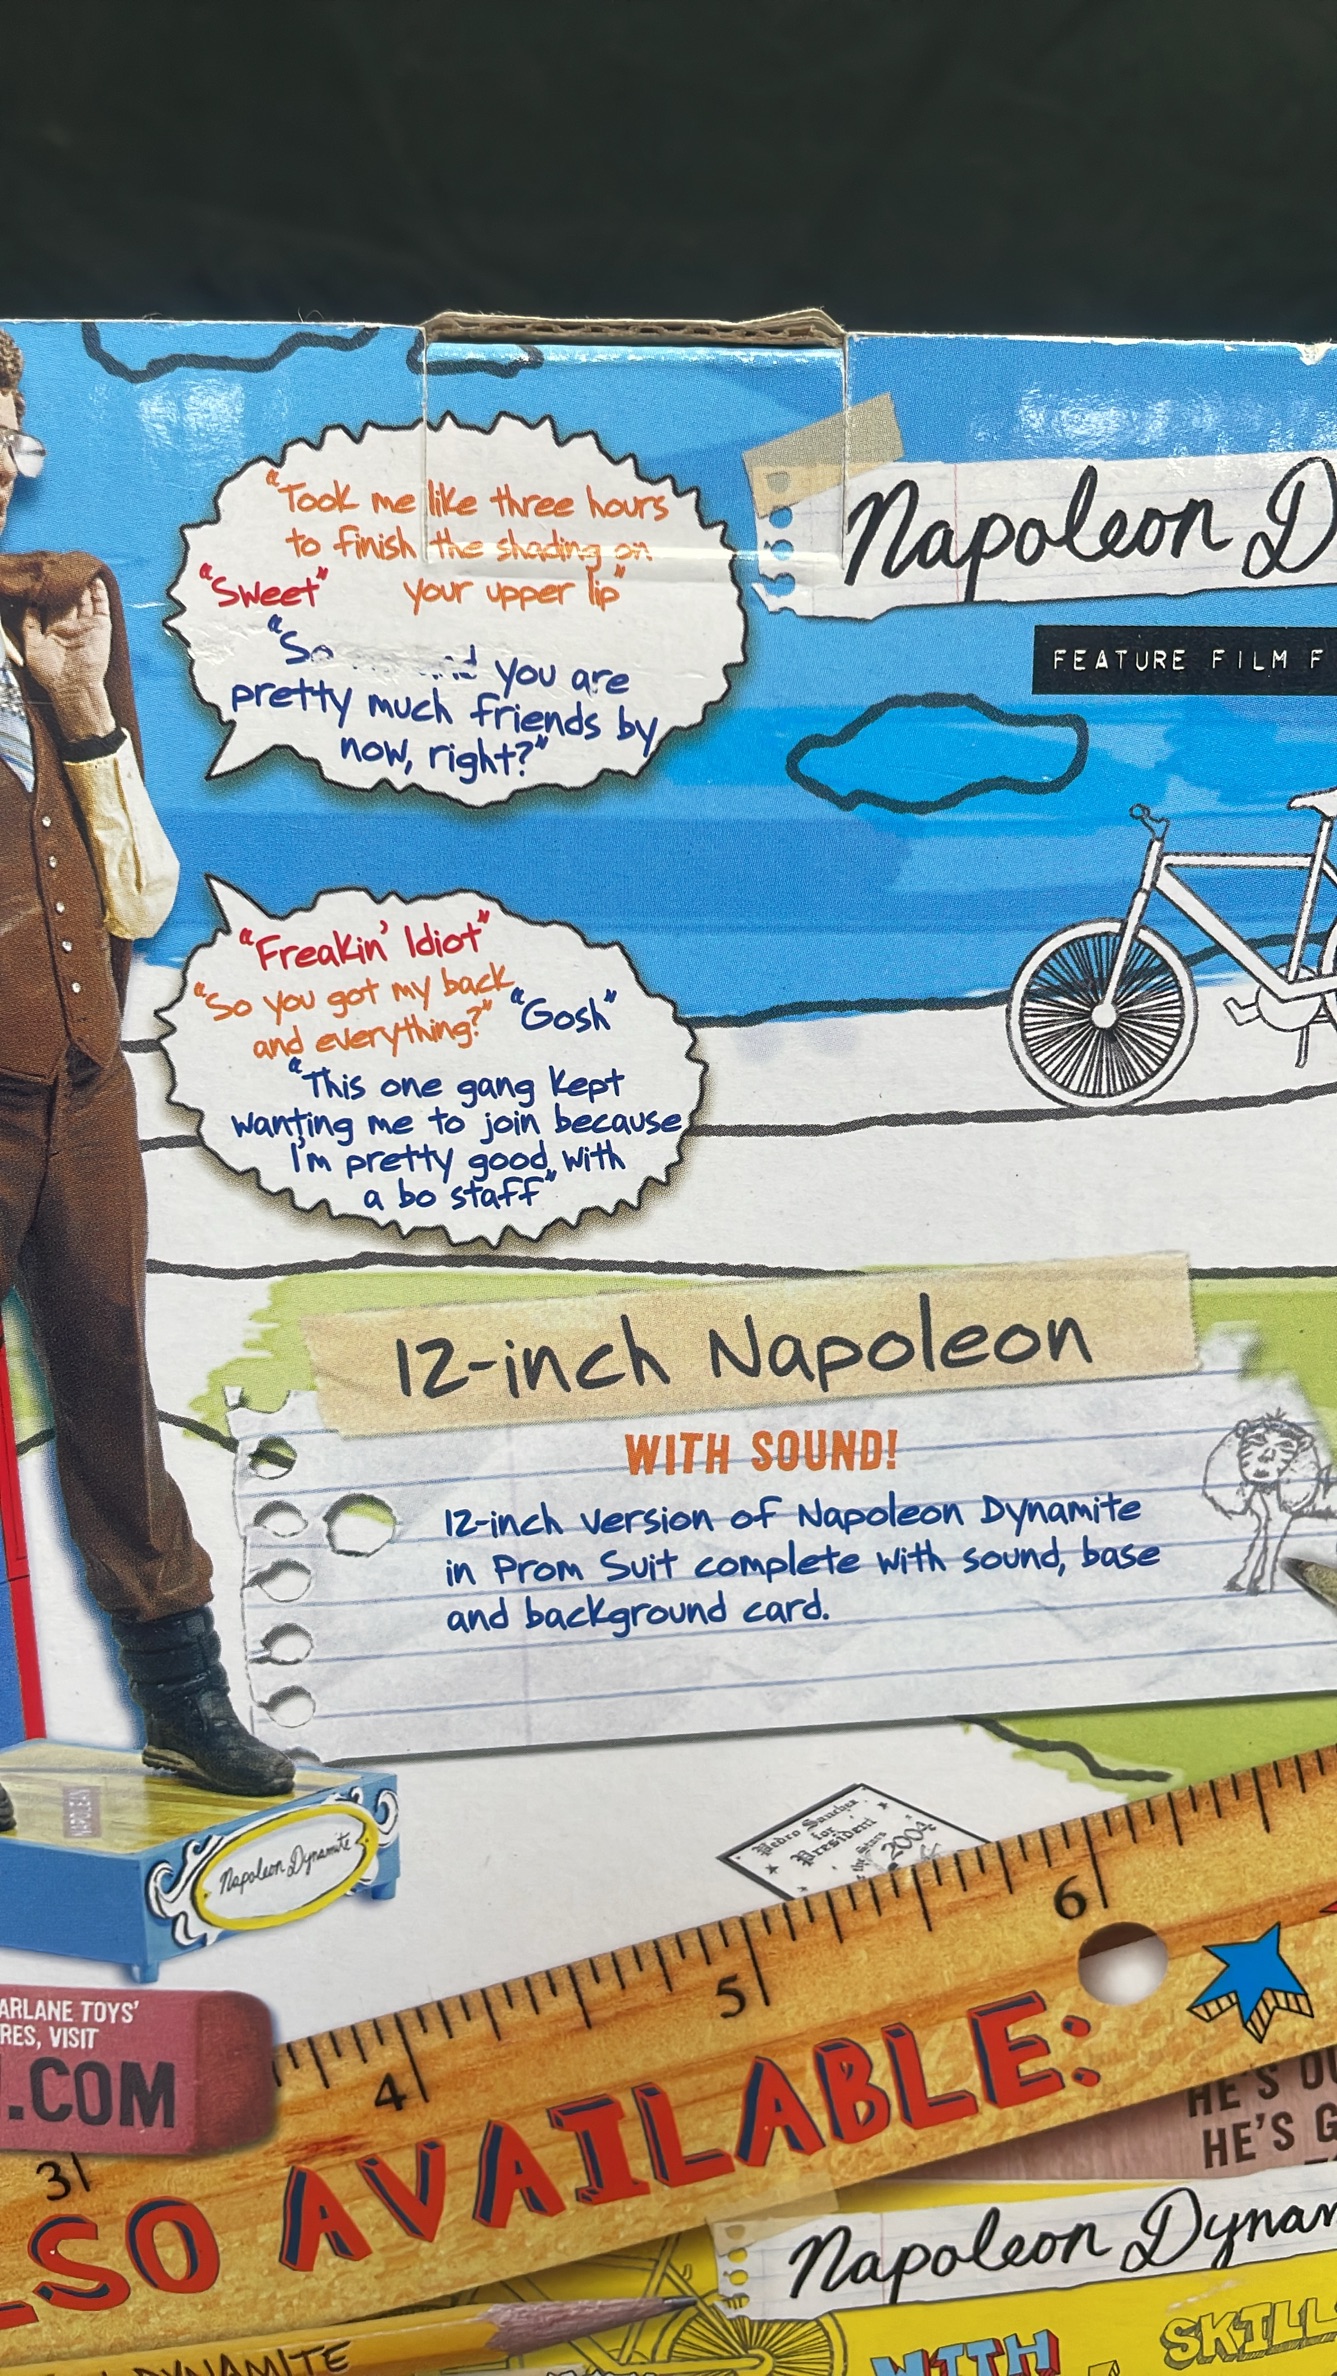 "Took me like three hours
to finish the shading on
your upper lip"
"Sweet"
"So you are
pretty much friends by
now, right?"
Napoleon D
FEATURE FILM F
"Freakin' Idiot"
"So you got my back
and everything?"
"Gosh"
"This one gang kept
wanting me to join because
I'm pretty good with
a bo staff"
12-inch Napoleon
WITH SOUND!
12-inch version of Napoleon Dynamite
in Prom Suit complete with sound, base
and background card.
NAPOLEON
Napoleon Dynamite
Pedro Sanchez
for
President
2004
ARLANE TOYS'
RES, VISIT
.COM
3
4
5
6
LSO AVAILABLE:
HE'S OU
HE'S G
Napoleon Dynam
SKILL
WITH
DYNAMITE